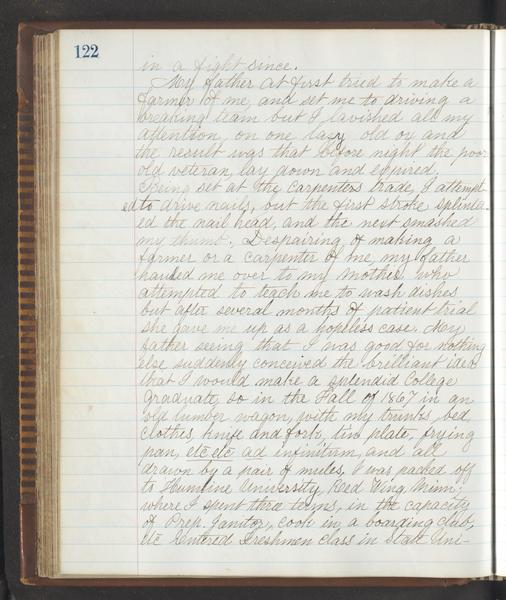 122
in a fight since.
My father at first tried to make a
farmer of me, and set me to driving a
breaking team but I lavished all my
attention, on one lazy old ox and
the result was that before night the poor
old veteran lay down and expired.
Being set at the carpenters trade, I attempt-
ed to drive nails, but the first stroke splinter-
ed the nail head, and the next smashed
my thumb. Despairing of making a
farmer or a carpenter of me, my father
handed me over to my Mother who
attempted to teach me to wash dishes
but after several months of patient trial
she gave me up as a hopeless case. My
father seeing that I was good for nothing
else suddenly conceived the brilliant idea
that I would make a splendid College
graduate, so in the Fall of 1867 in an
old lumber wagon, with my trunks, bed,
clothes, knife and fork, tin plate, frying
pan, etc etc ad infinitum, and all
drawn by a pair of mules, I was packed off
to Hamline University, Red Wing, Minn;
where I spent three terms, in the capacity
of Prep. Janitor, cook in a boarding club,
etc Entered Freshmen class in State Uni-